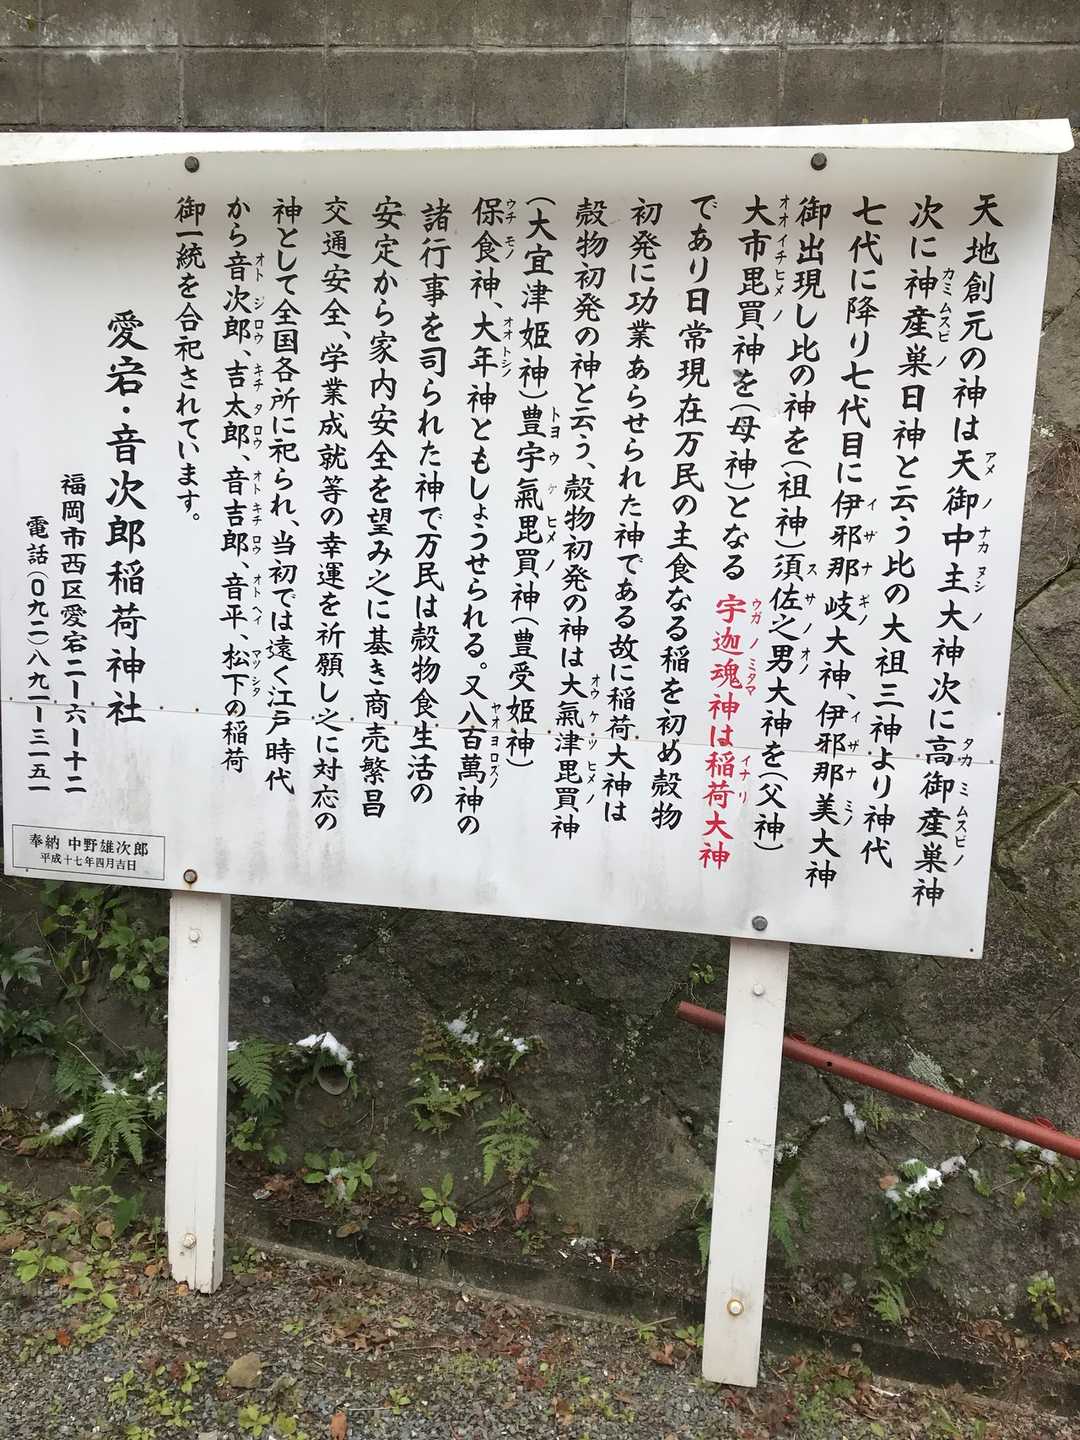 天地創元の神は天御中主大神次に高御産巣神
次に神産巣日神と云う比の大祖三神より神代
七代に降り七代目に伊邪那岐大神、伊邪那美大神
御出現し比の神を(祖神)須佐之男大神を(父神)
大市毘買神を(母神)となる 宇迦魂神は稲荷大神
であり日常現在万民の主食なる稲を初め穀物
初発に功業あらせられた神である故に稲荷大神は
穀物初発の神と云う、穀物初発の神は大氣津毘買神
(大宜津姫神)豊宇氣毘買神(豊受姫神)
保食神、大年神ともしょうせられる。又八百萬神の
諸行事を司られた神で万民は穀物食生活の
安定から家内安全を望み之に基き商売繁昌
交通安全、学業成就等の幸運を祈願し之に対応の
神として全国各所に祀られ、当初では遠く江戸時代
から音次郎、吉太郎、音吉郎、音平、松下の稲荷
御一統を合祀されています。
愛宕・音次郎稲荷神社
福岡市西区愛宕二ー六ー十二
電話(〇九二)八九一ー三一五一
奉納 中野雄次郎
平成十七年四月吉日
アメノナカヌシノ
タカミムスビノ
カミムスビノ
イザナギノ
イザナミノ
スサノオノ
オオイチヒメノ
ウガノミタマ
イナリ
オウケツヒメノ
トヨウケヒメノ
ウチモノ
オオトシノ
ヤオヨロズノ
オトジロウ
キチタロウ
オトキチロウ
オトヘイ
マツシタ